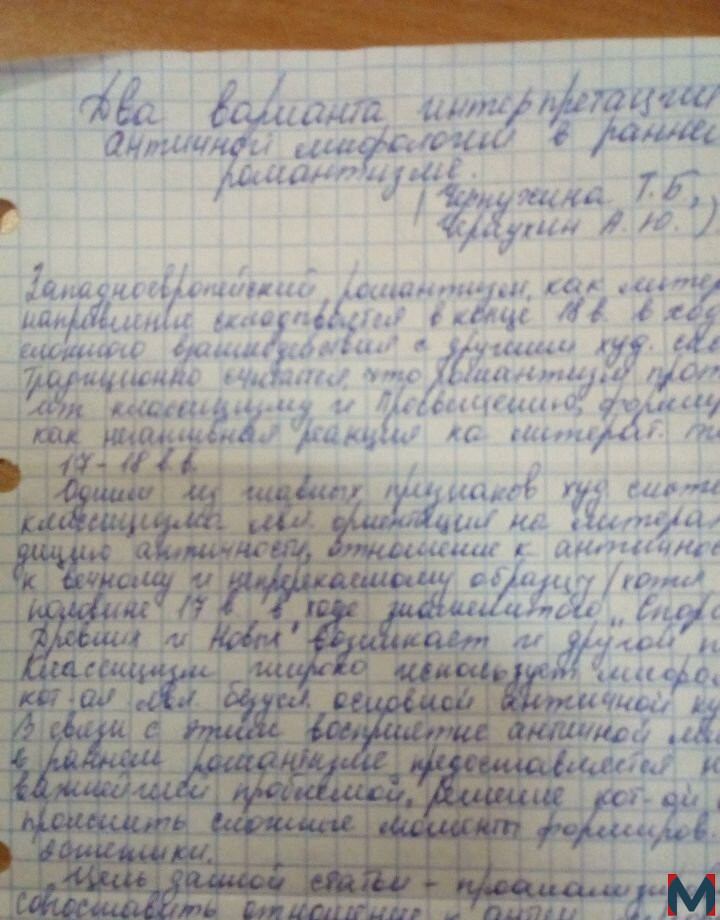 Два варианта интерпретации
античной мифологии в раннем
романтизме.
(Чернухина Т.Б.,
Чераухин А.Ю.)
Западноевропейский романтизм, как литер
направление складывается в конце 18 в. в ход
сложного взаимодействия с другими худ. сис
Традиционно считается, что романтизм прот
ит классицизму и Просвещению, формиру
как негативная реакция на литерат.
17-18 в.в.
Одним из главных признаков худ. систе
классицизма явл. ориентация на литерат
дицию античности, отношение к античнос
к вечному и непререкаемому образцу (хотя
половине 17 в. в ходе знаменитого „Спор
Древних и Новых" возникает и другой п
Классицизм широко использует мифол
кот-ая явл. безусл. основной античной ку
В связи с этим восприятие античной ми
в раннем романтизме предоставляется н
важнейшей проблемой, решение кот-ой
прояснить сложные моменты формиров.
эстетики.
Цель данной статьи - проанализи
сопоставить отношение к антич
M